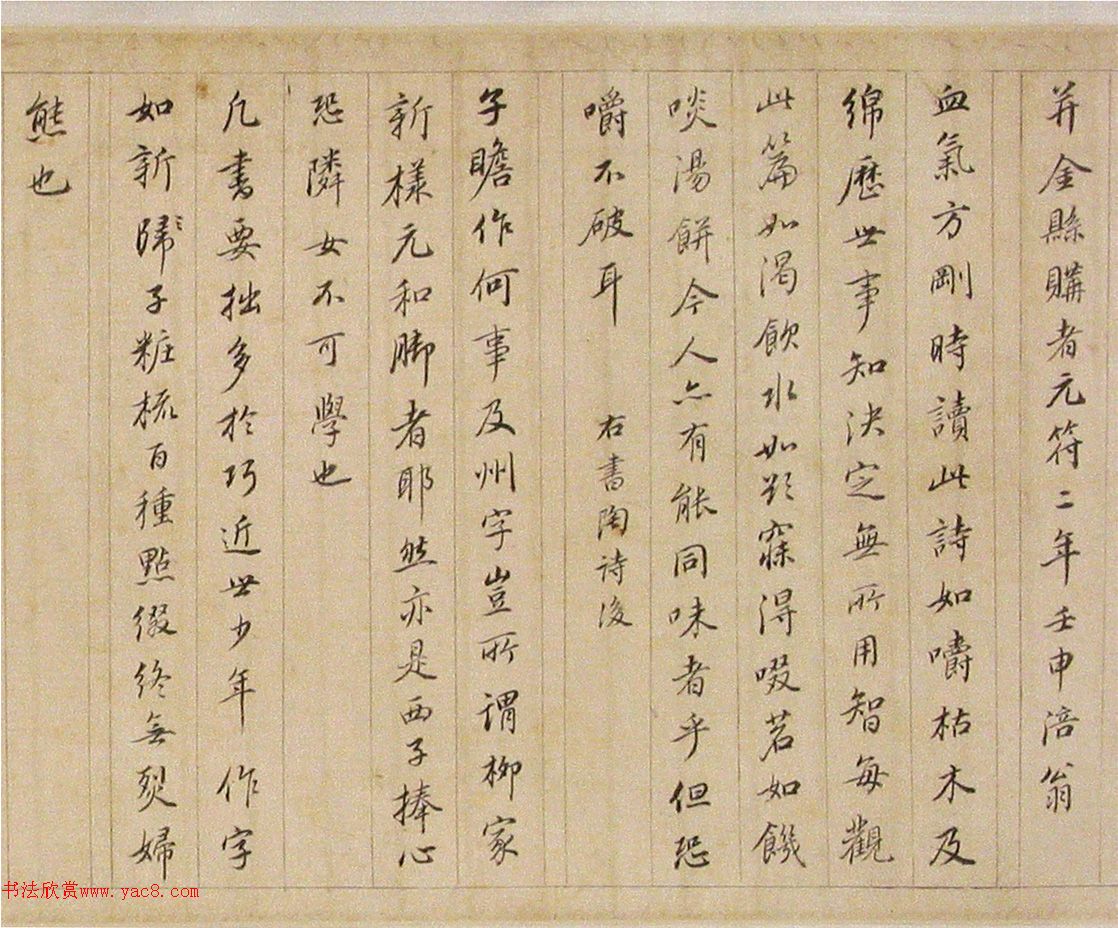 并金縣購者元符二年壬申涪翁
血氣方剛時讀此詩如嚼枯木及
綿歷世事知決定無所用智每觀
此篇如渴飲水如欲寐得啜茗如饑
啖湯餅今人亦有能同味者乎但恐
嚼不破耳 右書陶詩後
子瞻作何事及州字豈所謂柳家
新樣元和脚者耶然亦是西子捧心
恐隣女不可學也
凡書要拙多於巧近世少年作字
如新歸子粧梳百種點綴終無烈婦
態也
书法欣赏www.yac8.com